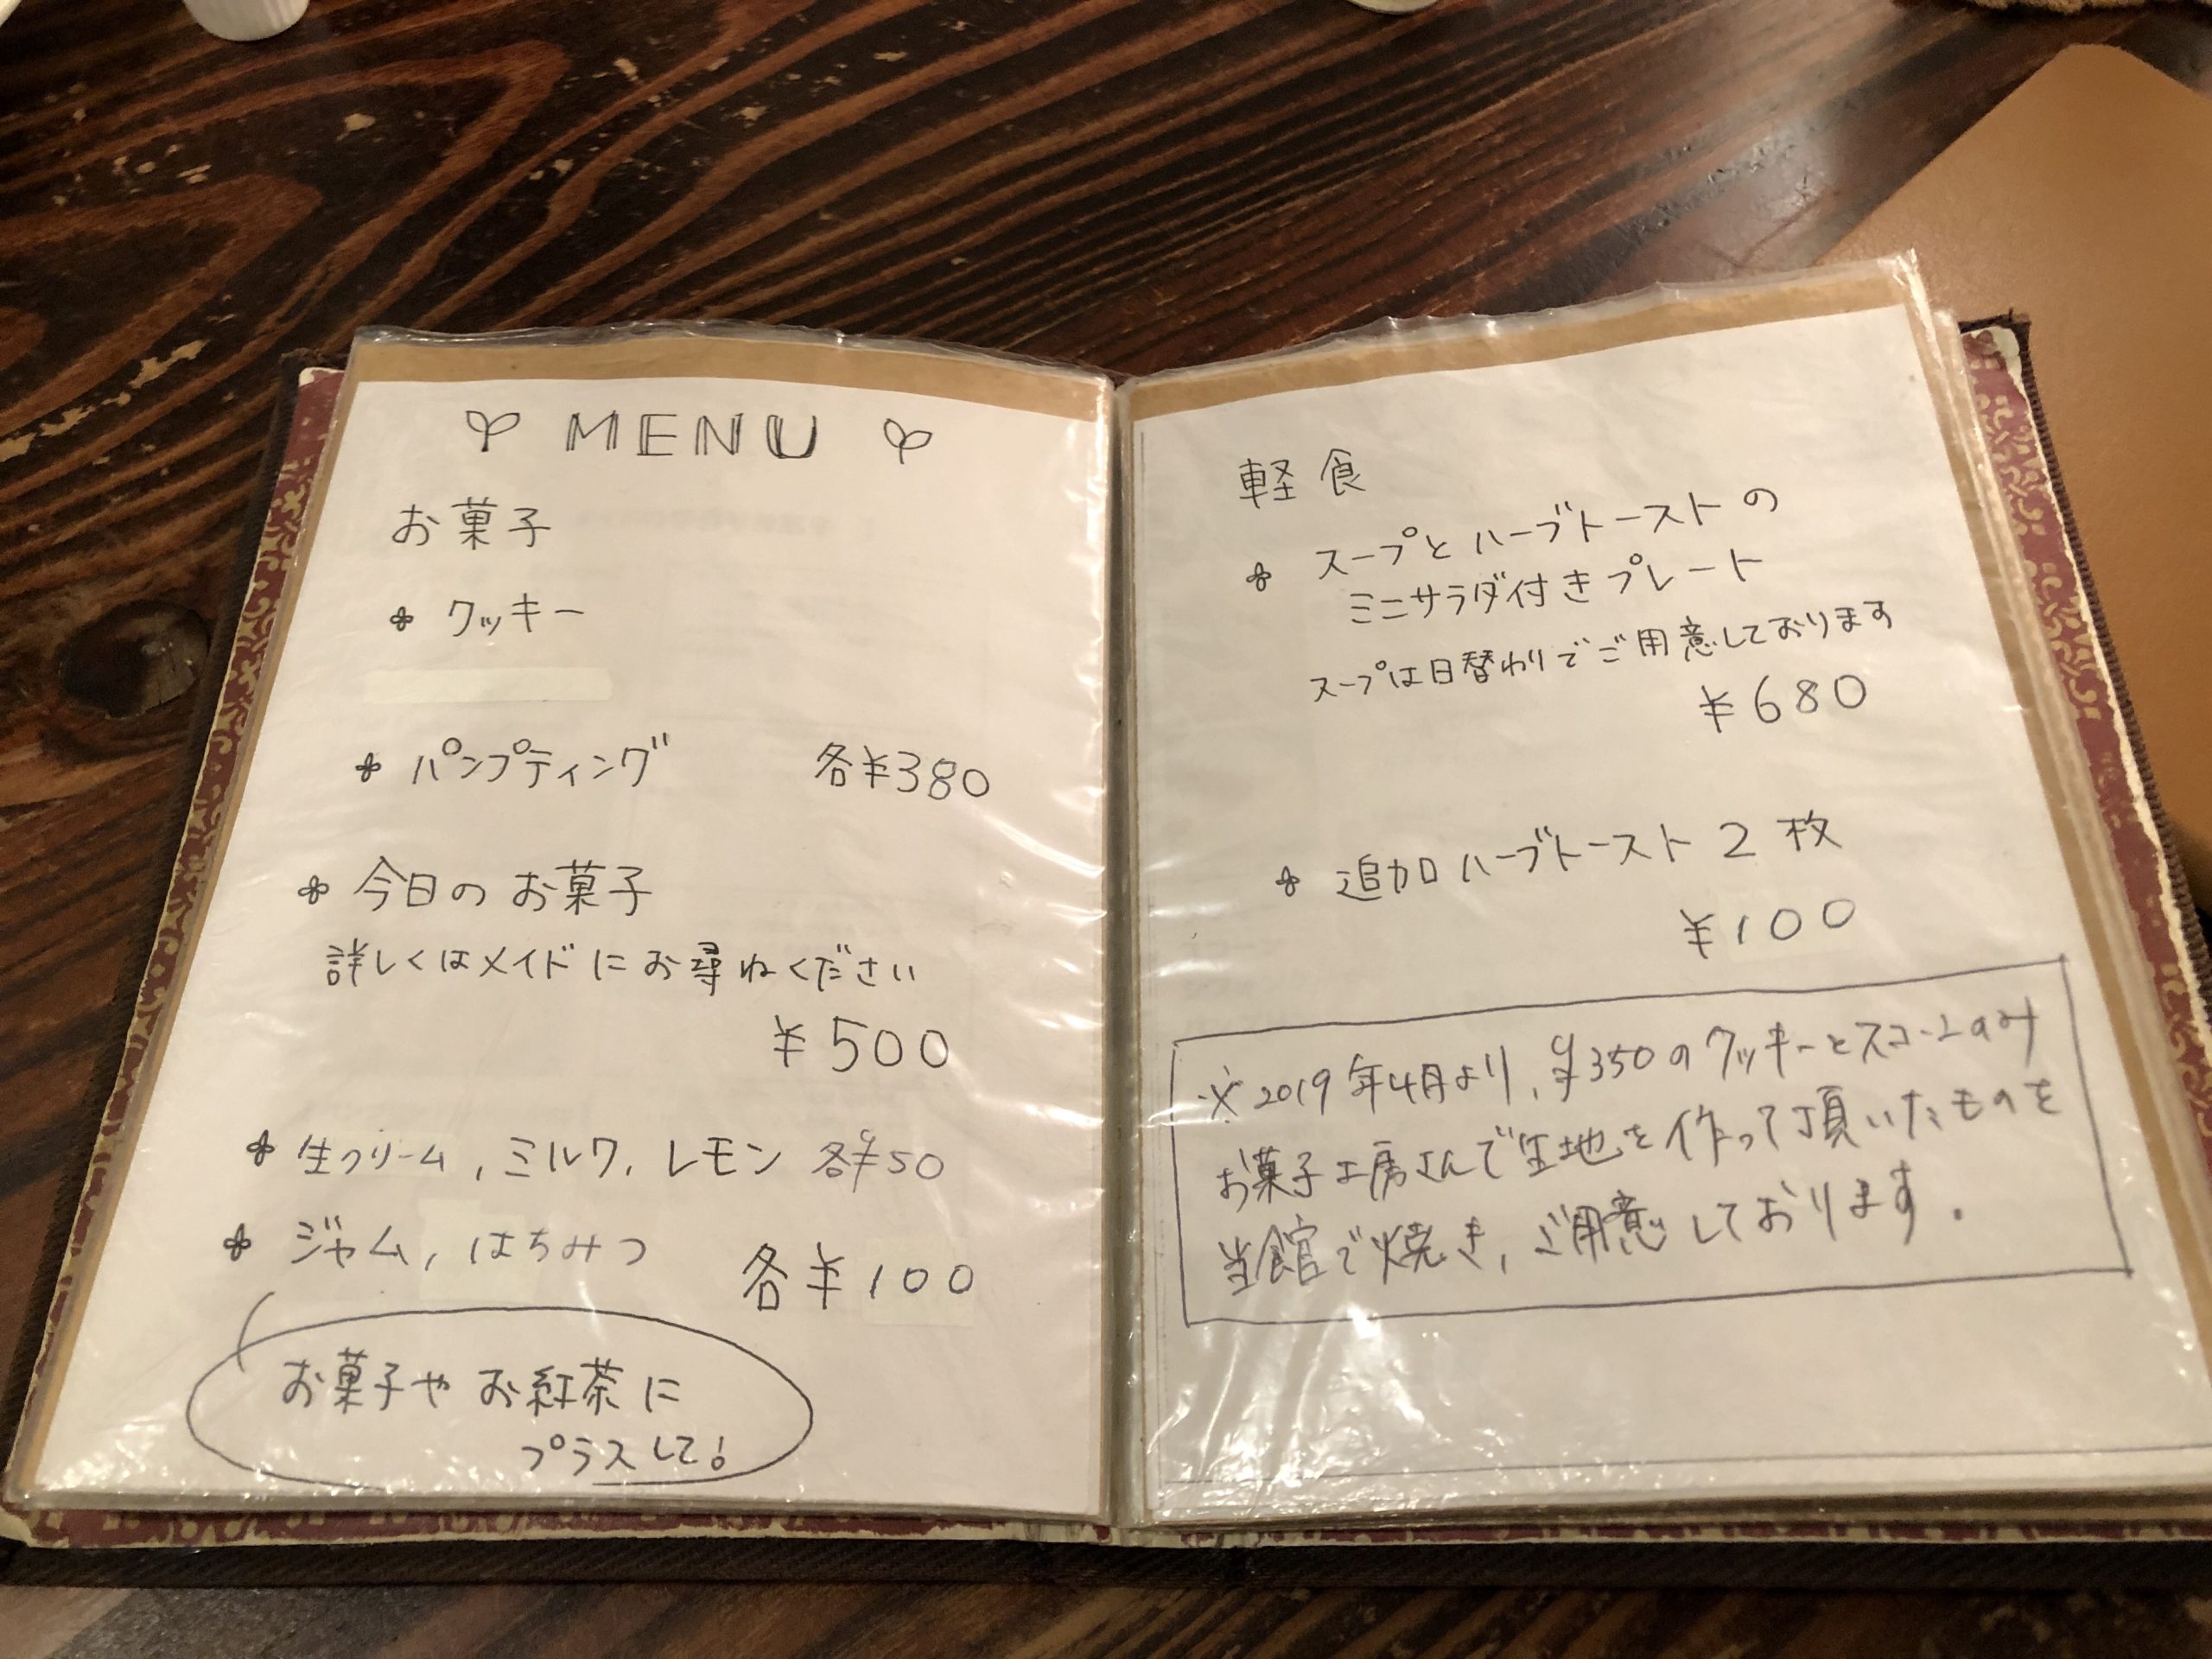 MENU
お菓子
* クッキー
* パンプティング 各¥380
* 今日のお菓子
詳しくはメイドにお尋ねください
¥500
* 生クリーム, ミルク, レモン 各¥50
* ジャム, はちみつ 各¥100
お菓子や お紅茶に
プラスして!
軽食
* スープとハーブトーストの
ミニサラダ付きプレート
スープは日替わりでご用意しております
¥680
* 追加ハーブトースト 2枚
¥100
※2019年4月より, ¥350のクッキーとスコーンのみ
お菓子工房さんで生地を作って頂いたものを
当館で焼き, ご用意しております.